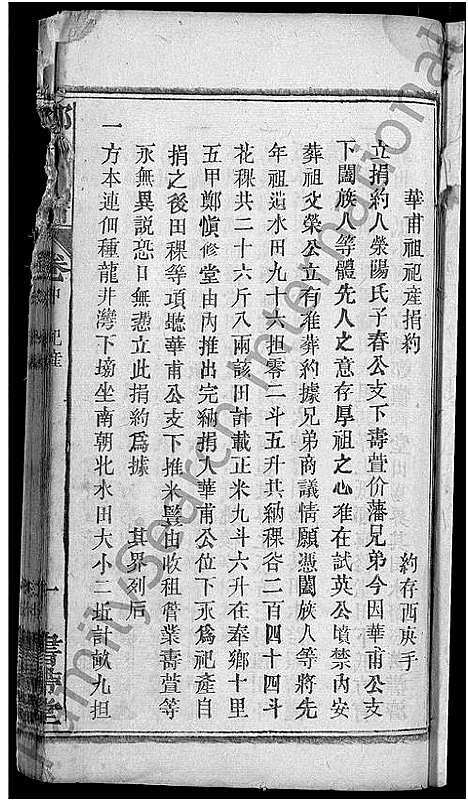 華甫祖祀產捐約　約存酉庚手
立捐約人滎陽氏子春公支下壽萱价藩兄弟今因華甫公支
下闔族人等體先人之意存厚祖之心准在試英公墳禁內安
葬祖文榮公立有准葬約據兄弟商議情願憑闔族人等將先
年祖遺水田九十六担零二斗五升共納稞谷二百四十四斗
花稞共二十六斤八兩該田計載正米九斗六升在奉鄉十里
五甲鄭愼修堂由內推出完納捐人華甫公位下永爲祀產自
捐之後田稞等項聽華甫公支下推米過由收租管業壽萱等
永無異說恐口無憑立此捐約爲據　其界列后
一方本連佃種龍井灣下塝坐南朝北水田大小二坵計畝九担
卷中
祀產
一
書帶堂
FamilySearch International